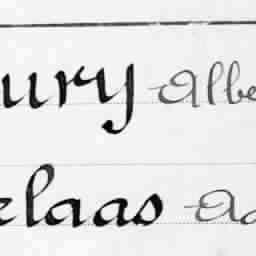 ury Albe
elaas Ad